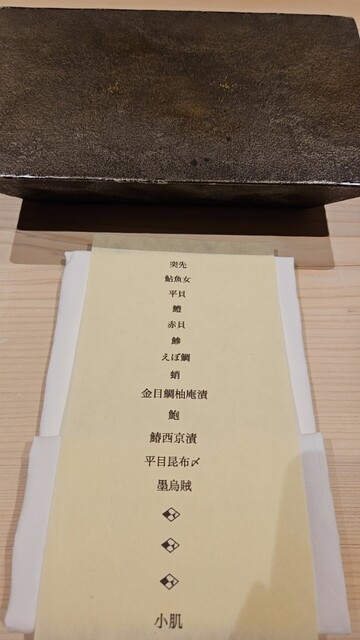 突先
鮎魚女
平貝
鱧
赤貝
鯵
えぼ鯛
蛸
金目鯛柚庵漬
鮑
鰆西京漬
平目昆布〆
墨烏賊
小肌